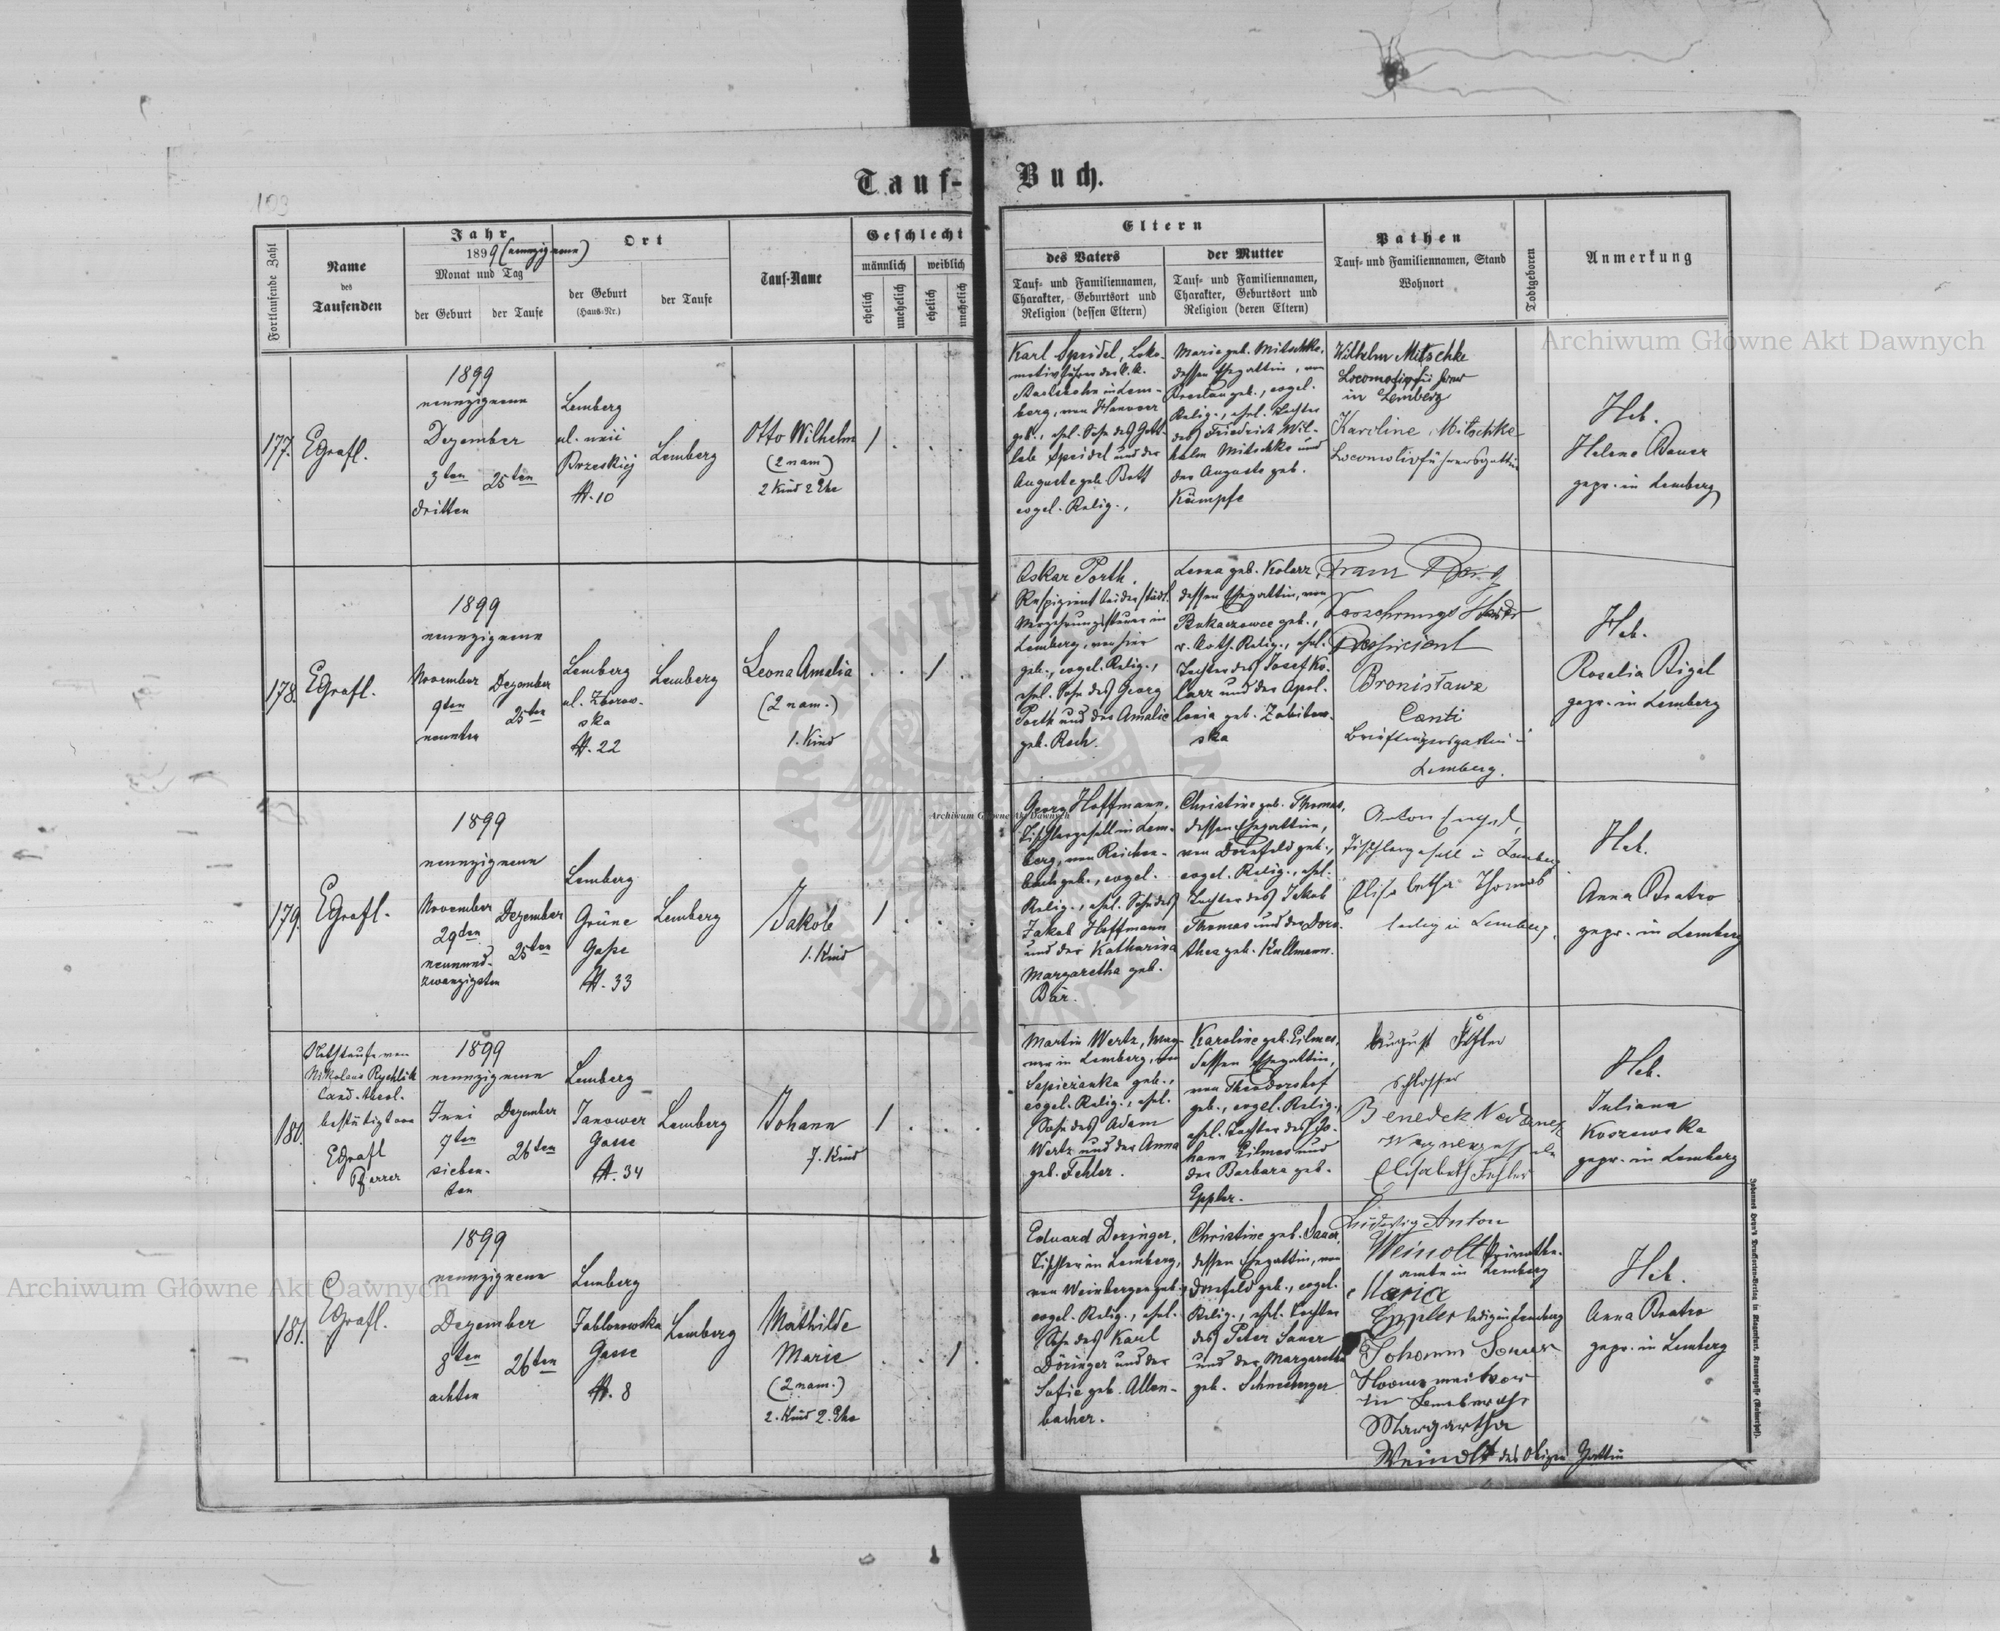 Tauf-Buch.
103
Fortlaufende Zahl
Name
des
Taufenden
Jahr
1899 (neunzigneun)
Monat und Tag
der Geburt
der Taufe
Ort
der Geburt
(Haus-Nr.)
der Taufe
Tauf-Name
Geschlecht
männlich
weiblich
ehelich
unehelich
ehelich
unehelich
Eltern
des Vaters
Tauf- und Familiennamen,
Charakter, Geburtsort und
Religion (dessen Eltern)
der Mutter
Tauf- und Familiennamen,
Charakter, Geburtsort und
Religion (deren Eltern)
Pathen
Tauf- und Familiennamen, Stand
Wohnort
Todtgeboren
Anmerkung
177.
EGrafl.
1899
neunzigneun
Dezember
3ten
dritten
25ten
Lemberg
ul.
Brzeskiej
N. 10
Lemberg
Otto Wilhelm
(2 nam)
2 Kind 2 Ehe
1
Karl Speidel, Loko-
motivführer der k. k.
Staatsbahn in Lem-
berg, von Hanover
geb., ehel. Sohn des Gott-
lieb Speidel und der
Auguste geb. Bott
evgel. Relig.,
Marie geb. Mitschke,
dessen Ehegattin, von
Breslau geb., evgel.
Relig., ehel. Tochter
des Friedrich Wil-
helm Mitschke und
der Auguste geb.
Kümpfe
Wilhelm Mitschke
Locomotivführer
in Lemberg
Karoline Mitschke
Locomotivführersgattin
Heb.
Helene Bauer
gepr. in Lemberg
178.
EGrafl.
1899
neunzigneun
November
9ten
neunten
Dezember
25ten
Lemberg
ul. Zborow-
ska
N. 22
Lemberg
Leona Amelia
(2 nam.)
1. Kind
1
Oskar Porth,
Respizient bei der städt.
Verzehrungssteuer in
Lemberg, von hier
geb., evgel. Relig.,
ehel. Sohn des Georg
Porth und der Amalie
geb. Rech.
Leona geb. Kolarz,
dessen Ehegattin, von
Bukaczowce geb.,
r. kath. Relig., ehel.
Tochter des Josef Ko-
larz und der Apol-
lonia geb. Zabikow-
ska
Franz
Bronisława
Canti
Briefträgersgattin in
Lemberg.
Heb.
Rosalia Bigel
gepr. in Lemberg
179.
EGrafl.
1899
neunzigneun
November
29ten
neunund-
zwanzigsten
Dezember
25ten
Lemberg
Grüne
Gasse
N. 33
Lemberg
Jakob
1. Kind
1
Georg Hoffmann,
Tischlergesell in Lem-
berg, von Reichen-
bach geb., evgel.
Relig., ehel. Sohn des
Jakob Hoffmann
und der Katharina
Margaretha geb.
Bär.
Christine geb. Thomas,
dessen Ehegattin,
von Dornfeld geb.,
evgel. Relig., ehel.
Tochter des Jakob
Thomas und der Doro-
thea geb. Kullmann.
Anton Engel,
Tischlergesell in Lemberg
Elisabetha Thomas
ledig in Lemberg.
Heb.
Anna Bratro
gepr. in Lemberg
180.
Nothtaufe von
Nikolaus Rychlik
Cand. theol.
bestätigt von
EGrafl
Pfarrer
1899
neunzigneun
Juni
7ten
sieben-
ten
Dezember
26ten
Lemberg
Janower
Gasse
N. 34
Lemberg
Johann
7. Kind
1
Martin Wertz, Wag-
ner in Lemberg, von
Sapieżanka geb.,
evgel. Relig., ehel.
Sohn des Adam
Wertz und der Anna
geb. Fehler.
Karoline geb. Eilmes,
dessen Ehegattin,
von Theodorshof
geb., evgel. Relig.,
ehel. Tochter des Jo-
hann Eilmes und
der Barbara geb.
Eppler.
August Fehler
Schlosser
Benedek
Elisabeth Fehler
Heb.
Juliana
Koszewska
gepr. in Lemberg
181.
EGrafl.
1899
neunzigneun
Dezember
8ten
achten
26ten
Lemberg
Jablonowska
Gasse
N. 8
Lemberg
Mathilde
Marie
(2 nam.)
2. Kind 2. Ehe
1
Eduard Doringer,
Tischler in Lemberg,
von Weinbergen geb.,
evgel. Relig., ehel.
Sohn des Karl
Döringer und der
Sofie geb. Allen-
bacher.
Christine geb. Sauer,
dessen Ehegattin, von
Dornfeld geb., evgel.
Relig., ehel. Tochter
des Peter Sauer
und der Margaretha
geb. Schneeberger
Ludwig Anton
Weindlt Privatbe-
amte in Lemberg
Maria
Eppler ledig in Lemberg
Johann Sauer
in
Margartha
Weindlt des Obigen Gattin
Heb.
Anna Bratro
gepr. in Lemberg
Archiwum Główne Akt Dawnych
Archiwum Główne Akt Dawnych
Archiwum Główne Akt Dawnych